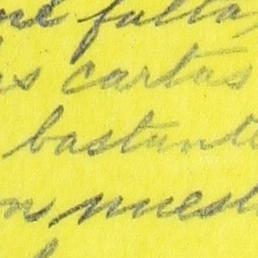 me falta
s cartas
bastante
n nuest